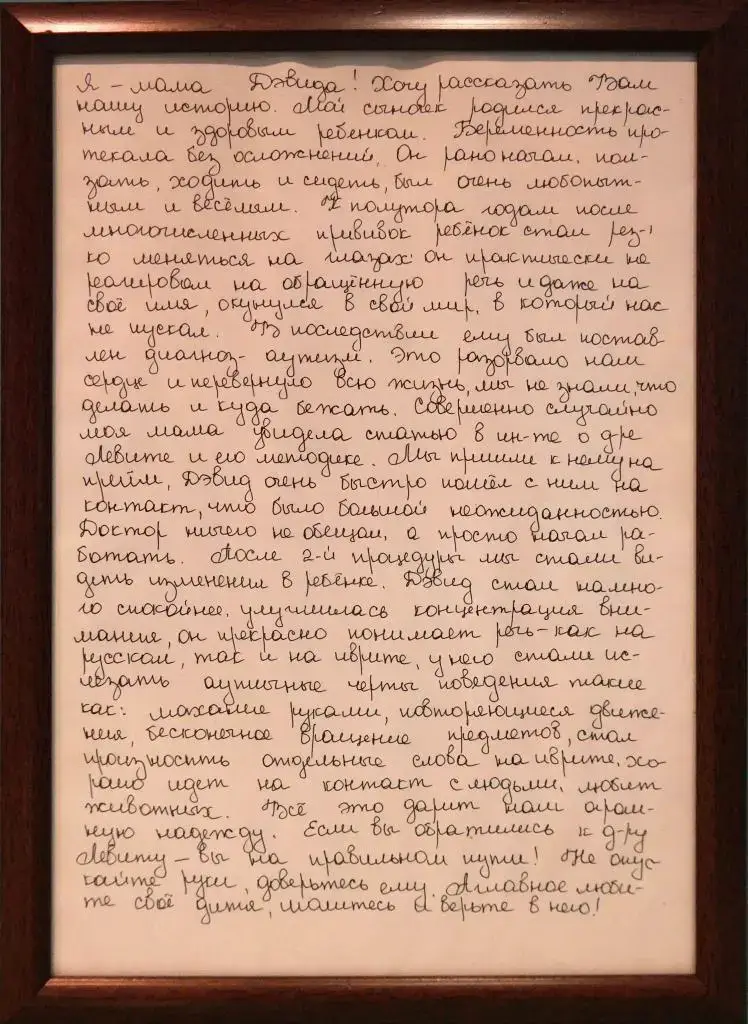 Я – мама Дэвида! Хочу рассказать Вам
нашу историю. Мой сыночек родился прекрас-
ным и здоровым ребенком. Беременность про-
текала без осложнений. Он рано начал, пол-
зать, ходить и сидеть, был очень любопыт-
ным и весёлым. К полутора годам после
многочисленных прививок ребёнок стал рез-
ко меняться на глазах: он практически не
реагировал на обращённую речь и даже на
своё имя, окунулся в свой мир, в который нас
не пускал. В последствии ему был постав
лен диагноз- аутизм. Это разорвало нам
сердце и перевернуло всю жизнь, мы не знали, что
делать и куда бежать. Совершенно случайно
моя мама увидела статью в ин-те о д-ре
Левите и его методике. Мы пришли к нему на
приём, Дэвид очень быстро пошёл с ним на
контакт, что было большой неожиданностью.
Доктор ничего не обещал, а просто начал ра-
ботать. После 2-й процедуры мы стали ви-
деть изменения в ребёнке. Дэвид стал намно-
го спокойнее, улучшилась концентрация вни-
мания, он прекрасно понимает речь – как на
русском, так и на иврите, у него стали ис-
чезать аутичные черты поведения такие
как: махание руками, повторяющиеся движе-
ния, бесконечное вращение предметов, стал
произносить отдельные слова на иврите, хо-
рошо идет на контакт с людьми, любит
животных. Всё это дарит нам огром-
ную надежду. Если вы обратились к д-ру
Левиту – вы на правильном пути! Не опус
кайте руки, доверьтесь ему. А главное люби-
те своё дитя, молитесь и верьте в него!